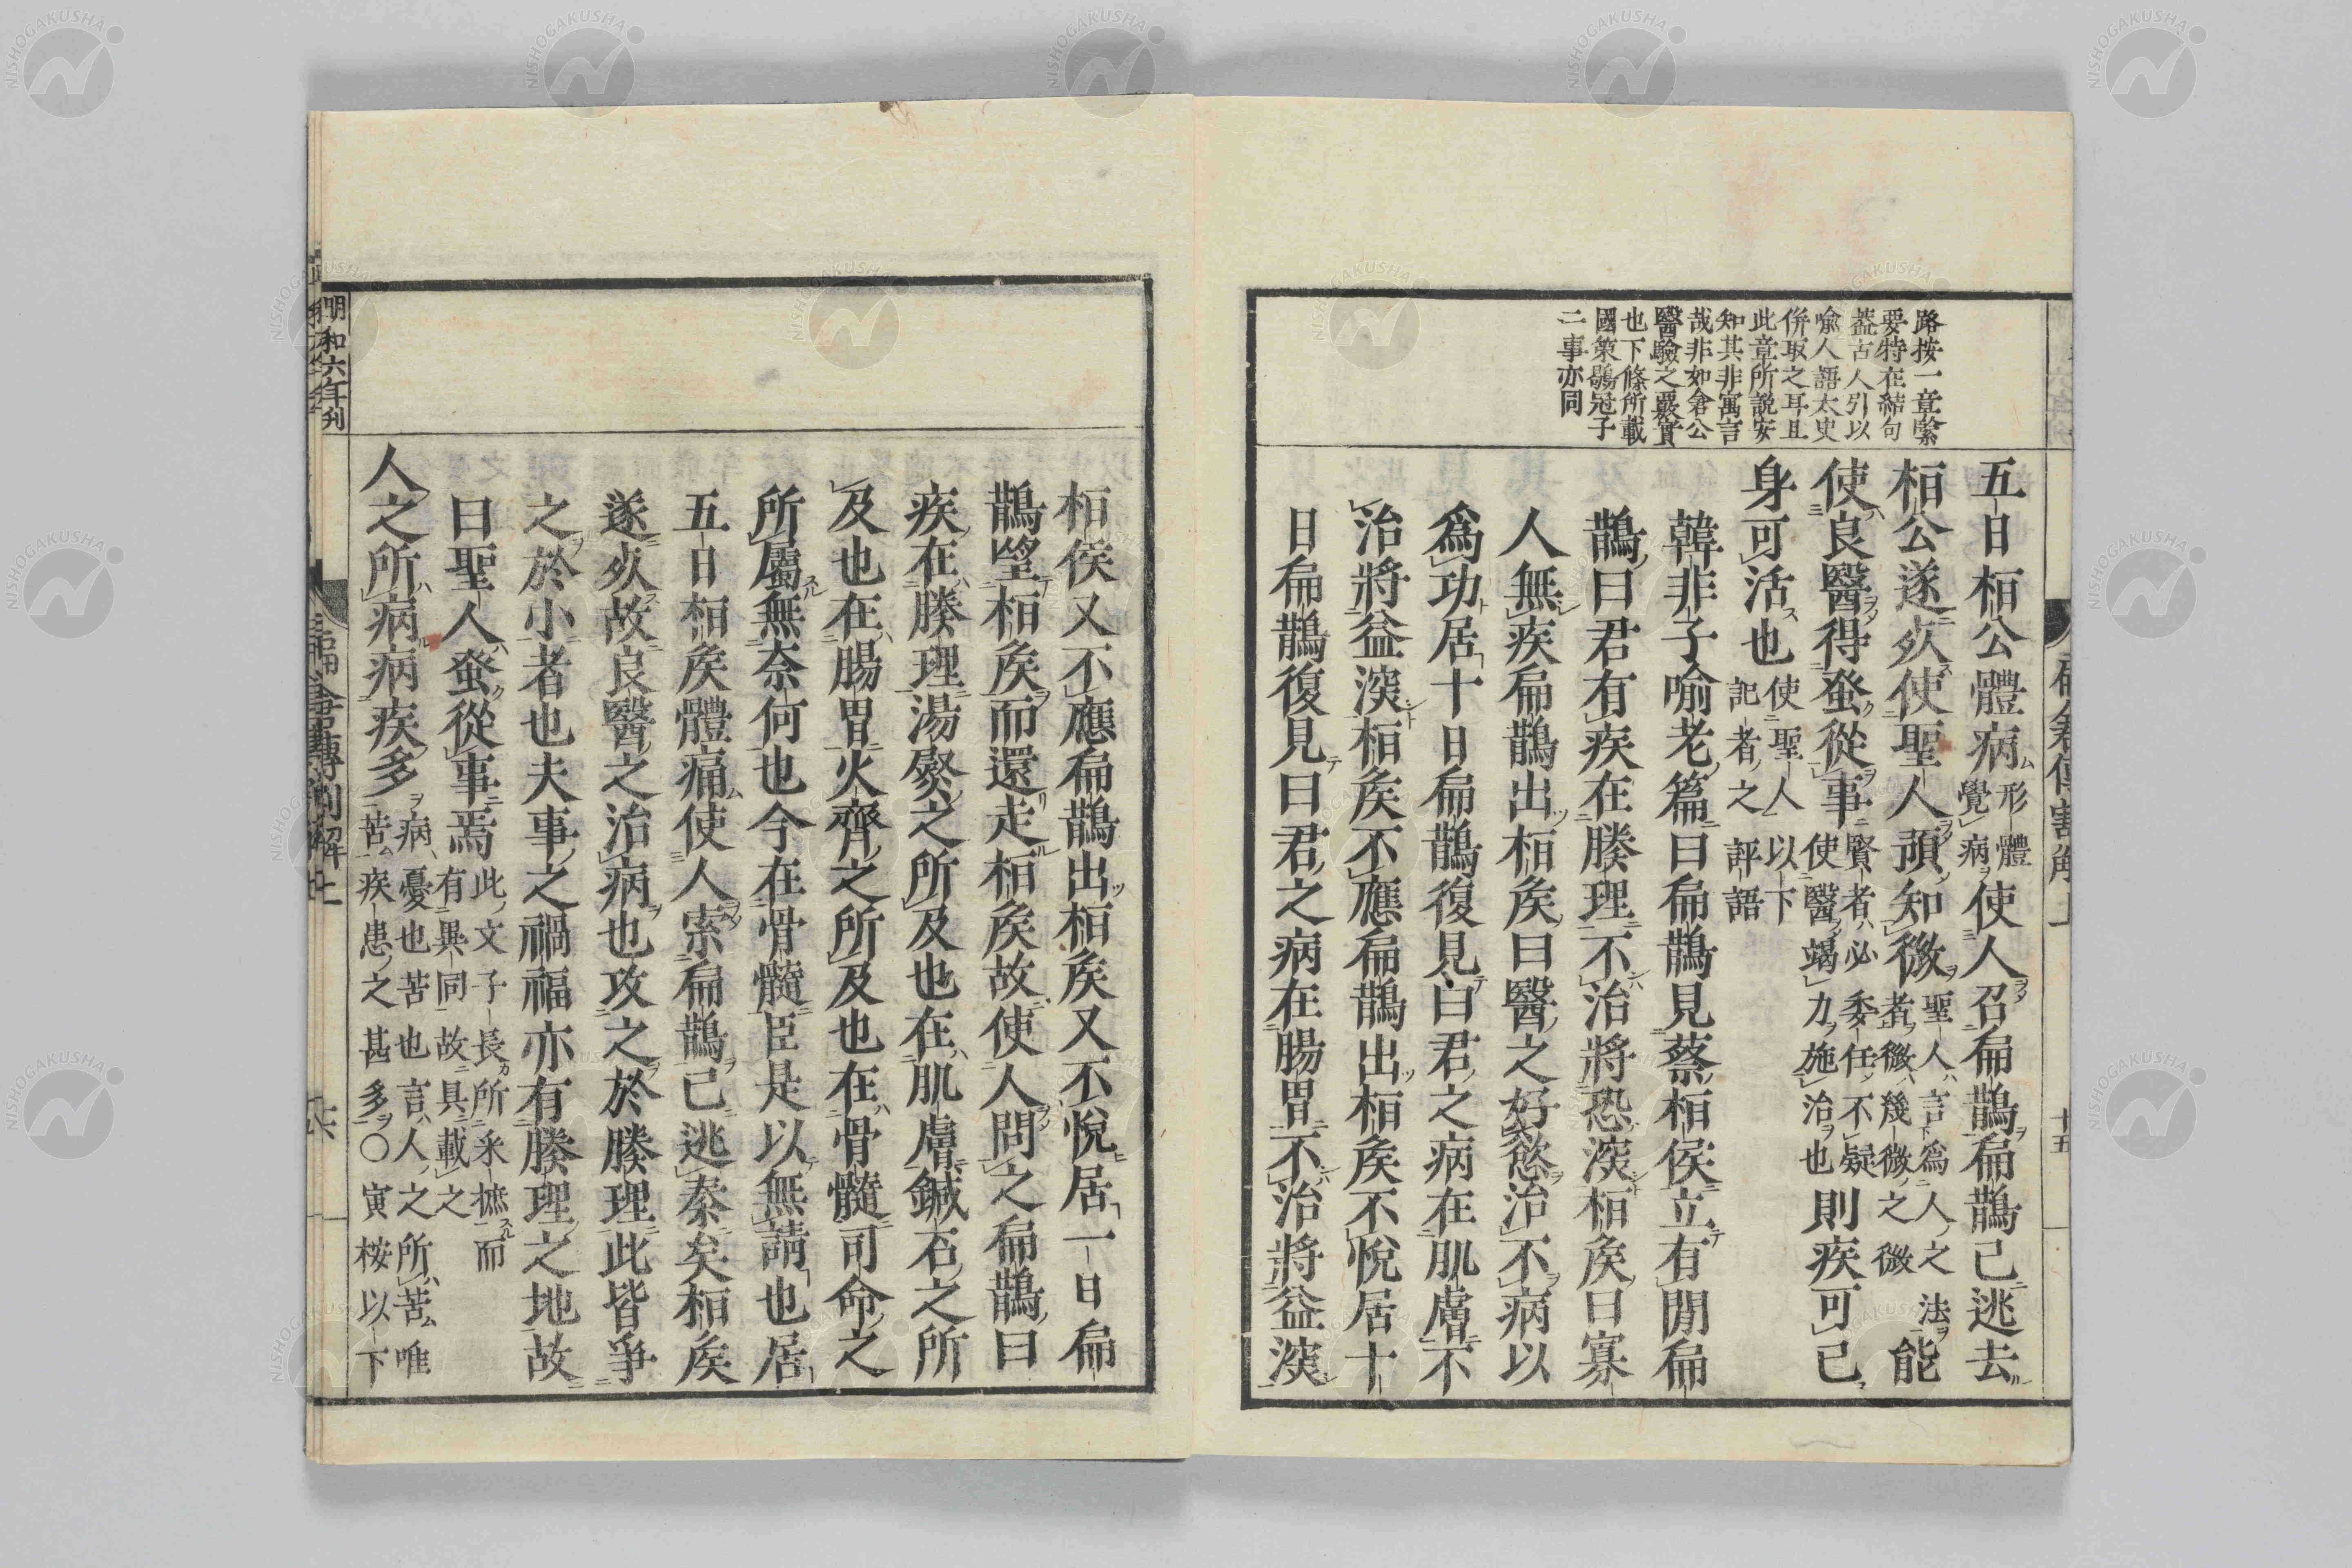 路按一章緊
要特在結句
蓋古人引以
喩人語太史
併取之耳且
此章所説安
知其非寓言
哉非如倉公
醫驗之覈實
也下條所載
國策鶡冠子
二事亦同
五日桓公體病形體覺病使人召扁鵲扁鵲已逃去
桓公遂死使聖人預知微聖人言爲人之微者微幾微之法能
使良醫得蚤從事賢者必委任不疑使醫竭力施治也則疾可已
身可活也使聖人以下記者之評語
韓非子喻老篇曰扁鵲見蔡桓侯立有閒扁
鵲曰君有疾在腠理不治將恐深桓侯曰寡
人無疾扁鵲出桓侯曰醫之好慾治不病以
爲功居十日扁鵲復見曰君之病在肌膚不
治將益深桓侯不應扁鵲出桓侯不悅居十
日扁鵲復見曰君之病在腸胃不治將益深
桓侯又不應扁鵲出桓侯又不悅居一日扁
鵲望桓侯而還走桓侯故使人問之扁鵲曰
疾在腠理湯熨之所及也在肌膚鍼石之所
及也在腸胃火齊之所及也在骨髓司命之
所屬無奈何也今在骨髓臣是以無請也居
五日桓侯體痛使人索扁鵲已逃秦矣桓侯
遂死故良醫之治病也攻之於腠理此皆爭
之於小者也夫事之禍福亦有腠理之地故
曰聖人蚤從事焉此文子長所采摭而有異同故具載之
人之所病病疾多病憂也苦也言人之所苦唯苦疾患之甚多〇寅桉以下
明和六年刊
十五
NISHOGAKUSHA